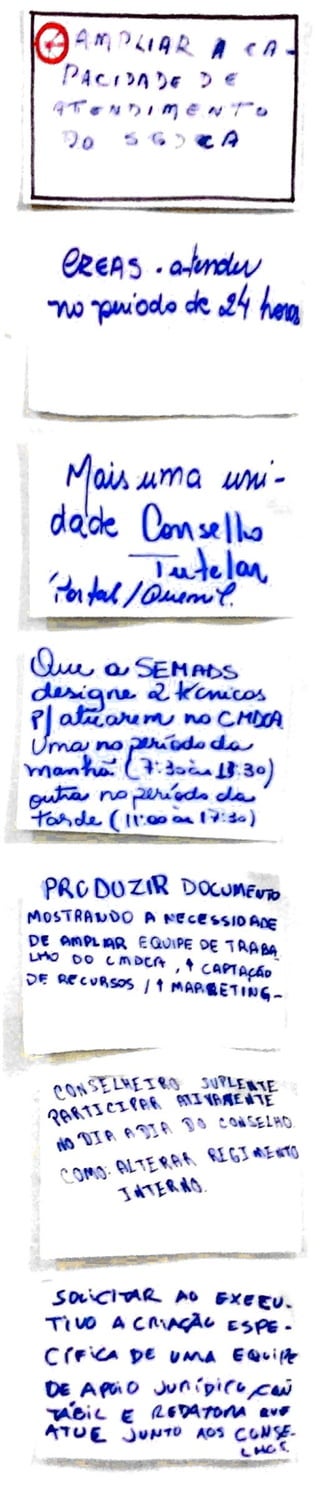 AMPLIAR A CA-
PACIDADE DE
ATENDIMENTO
DO SGDCA
CREAS - atender
no período de 24 horas
Mais uma uni-
dade Conselho
Tutelar
Portal/
Que a SEMADS
designe 2 técnicos
P/ atuarem no CMDCA
Uma no período da
manhã (7:30 às 13:30)
outra no período da
tarde (11:00 às 17:30)
PRODUZIR DOCUMENTO
MOSTRANDO A NECESSIDADE
DE AMPLIAR EQUIPE DE TRABA
LHO DO CMDCA, ↑ CAPTAÇÃO
DE RECURSOS / ↑ MARKETING-
CONSELHEIRO SUPLENTE
PARTICIPAR ATIVAMENTE
NO DIA A DIA DO CONSELHO
COMO: ALTERAR REGIMENTO
INTERNO.
SOLICITAR AO EXECU-
TIVO A CRIAÇÃO ESPE-
CÍFICA DE UMA EQUIPE
DE APOIO JURÍDICO, CON
TÁBIL E REDATORA QUE
ATUE JUNTO AOS CONSE-
LHOS.